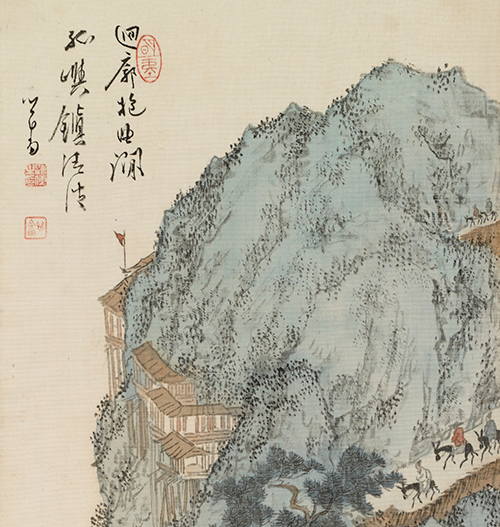 迴廊抱曲澗
孤嶼鎮洪波
心畬